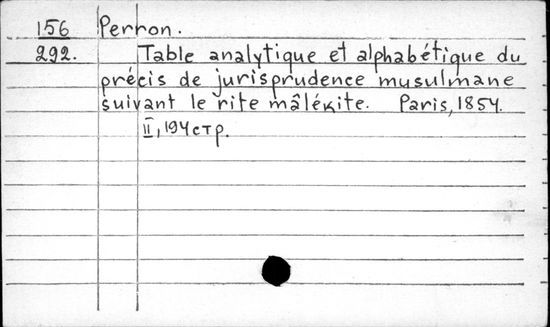 156 Perron.
292. Table analytique et alphabétique du
précis de jurisprudence musulmane
suivant le rite mâlékite. Paris, 1854.
II, 194 стр.